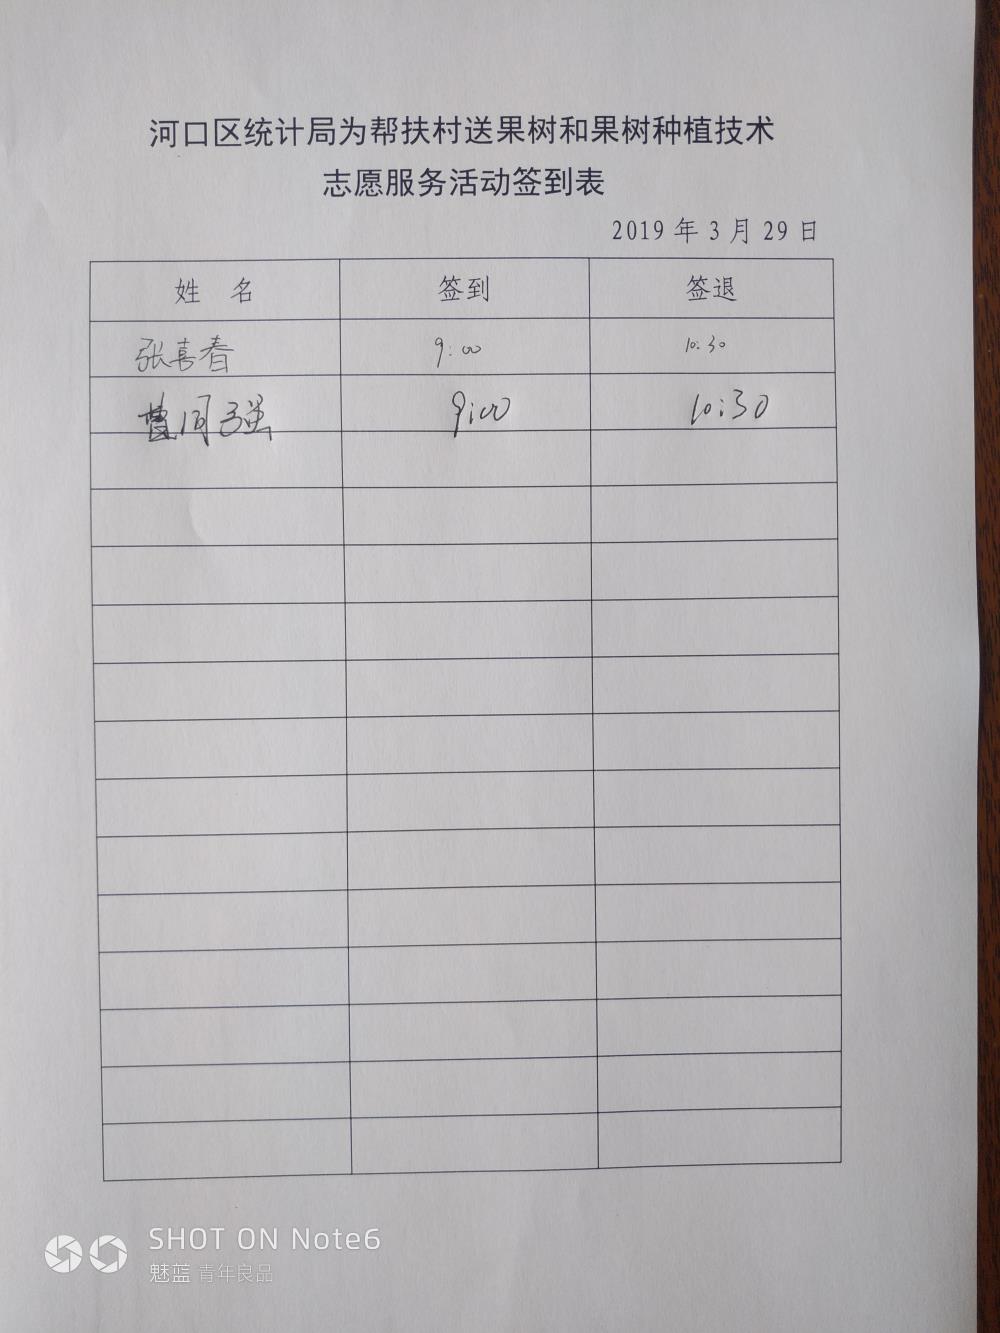 河口区统计局为帮扶村送果树和果树种植技术
志愿服务活动签到表
2019年3月29日
姓 名 签到 签退
张喜春 9:00 10:30
曹同强 9:00 10:30
SHOT ON Note6
魅蓝 青年良品